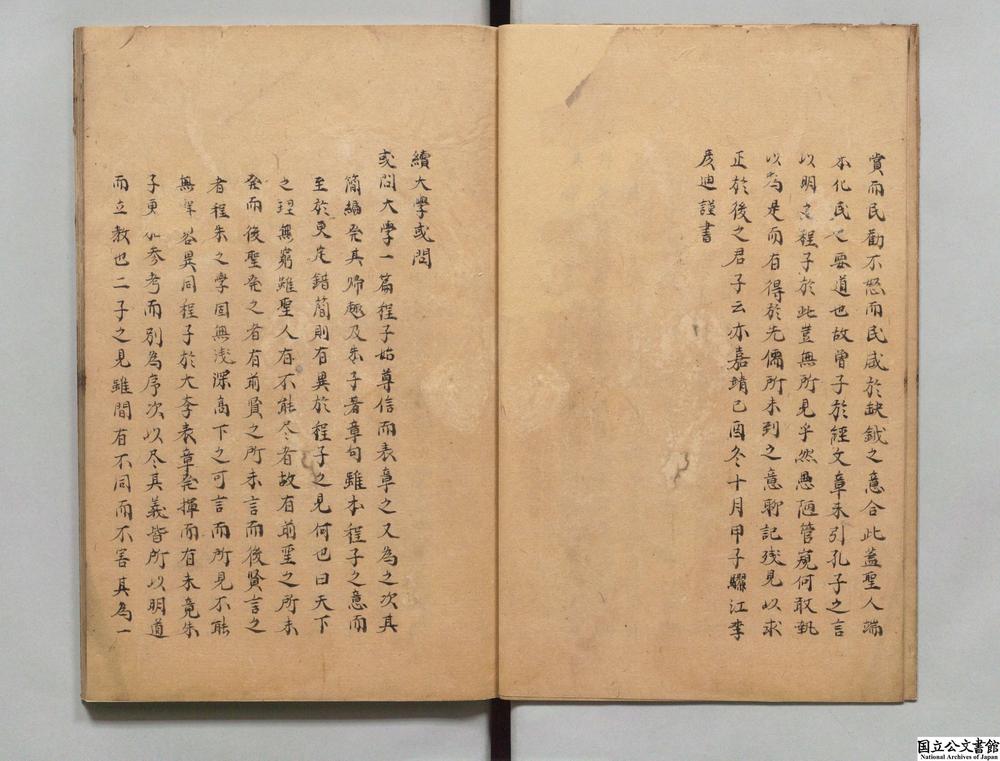 賞而民勸不怒而民威於鈇鉞之意合此盖聖人端
本化民之要道也故曾子於經文章末引孔子之言
以明之程子於此豈無所見乎然愚陋管窺何敢執
以為是而有得於先儒所未到之意聊記残見以求
正於後之君子云亦嘉靖己酉冬十月甲子驪江李
彦迪謹書
續大學或問
或問大學一篇程子始尊信而表章之又為之次其
簡編発其帰趣及朱子著章句雖本程子之意而
至於更定錯簡則有異於程子之見何也曰天下
之理無窮雖聖人存不能尽者故有前聖之所未
発而後聖発之者有前賢之所未言而後賢言之
者程朱之學固無浅深高下之可言而所見不能
無畧異同程子於大学表章発揮而有未竟朱
子更加参考而別為序次以尽其義皆所以明道
而立教也二子之見雖間有不同而不害其為一
国立公文書館
National Archives of Japan